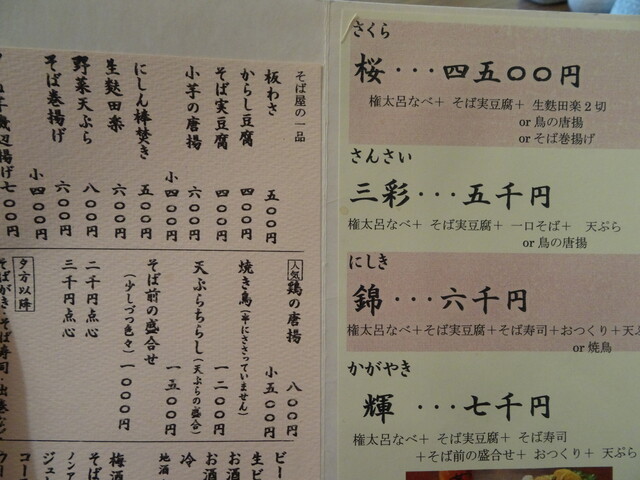 そば屋の一品
板わさ 五〇〇円
からし豆腐 四〇〇円
そば実豆腐 四〇〇円
小芋の唐揚 六〇〇円
小四〇〇円
にしん棒焚き 五〇〇円
生麩田楽 六〇〇円
野菜天ぷら 八〇〇円
そば巻揚げ 六〇〇円
小四〇〇円
磯辺揚げ 七〇〇円
人気 鶏の唐揚 八〇〇円
小五〇〇円
焼き鳥(串にささっていません) 一二〇〇円
天ぷらちらし(天ぷらの盛合) 一五〇〇円
そば前の盛合せ
(少しづつ色々) 一〇〇〇円
二千円点心
三千円点心
夕方以降
そばがき・そば寿司・出巻など
ビー
生ビ
お酒
お酒
冷
地酒
梅酒
そば
ノンア
ジュー
コー
ウー
さくら
桜・・・四五〇〇円
権太呂なべ+ そば実豆腐+ 生麩田楽2切
or 鳥の唐揚
or そば巻揚げ
さんさい
三彩・・・五千円
権太呂なべ+ そば実豆腐+ 一口そば+ 天ぷら
or 鳥の唐揚
にしき
錦・・・六千円
権太呂なべ+そば実豆腐+そば寿司+おつくり+天ぷ
or 焼鳥
かがやき
輝 ・・・七千円
権太呂なべ+ そば実豆腐+ そば寿司
+そば前の盛合せ+ おつくり+ 天ぷら